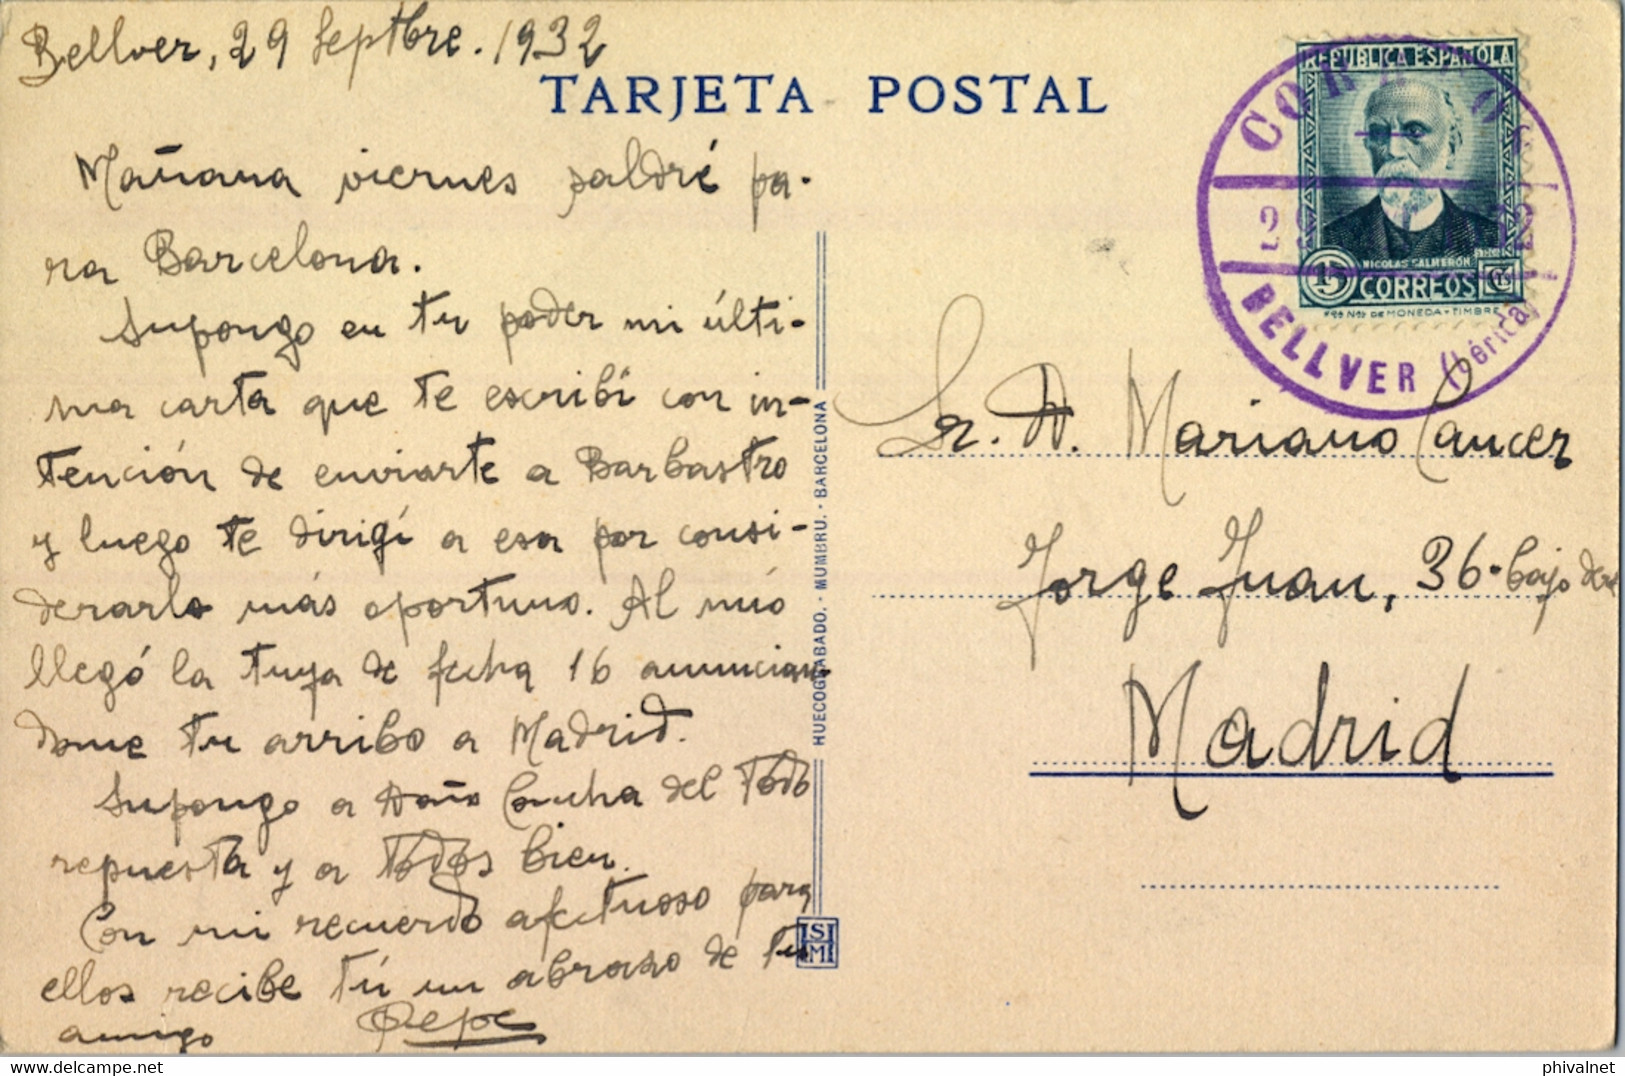 Bellver, 29 Septbre. 1932
TARJETA POSTAL
Mañana viernes saldré pa-
ra Barcelona.
Supongo en tu poder mi últi-
ma carta que te escribí con in-
tención de enviarte a Barbastro
y luego te dirigí a esa por consi-
derarlo más oportuno. Al mío
llegó la tuya de fecha 16 anuncian-
dome tu arribo a Madrid.
Supongo a Doña Concha del todo
repuesta y a todos bien.
Con mi recuerdo afectuoso para
ellos recibe tú un abrazo de tu
amigo Pepe
HUECOGRABADO. - MUMBRU. - BARCELONA
SH
M
REPUBLICA ESPAÑOLA
NICOLAS SALMERON
15 CORREOS Cts
Fca Nal DE MONEDA - TIMBRE
CORREOS
BELLVER (Lérida)
Sr. D. Mariano Cancer
Jorge Juan, 36-bajo dere
Madrid
www.delcampe.net
phivalnet